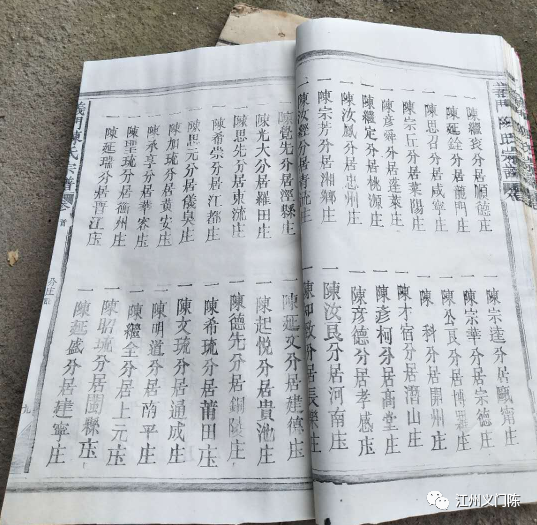 一陳繼袞分居順德庄
一陳延銓分居龍門庄
一陳思召分居咸寧庄
一陳宗丘分居葉陽庄
一陳彦舜分居蓬萊庄
一陳繼定分居桃源庄
一陳汝鳳分居忠州庄
一陳宗芳分居湘鄉庄
一陳汝經分居南
一陳宗逵分居
一陳宗華分居崇德庄
一陳公良分居博羅庄
一陳 科分居開州庄
一陳才宿分居潛山庄
一陳彦柯分居高堂庄
一陳彦德分居孝感庄
一陳汝良分居河南庄
一陳知政分居長樂庄
一陳覺先分居涇縣庄
一陳光大分居羅田庄
一陳思先分居東流庄
一陳希崇分居江都庄
一陳思元分居
一陳加琉分居黄安庄
一陳承享分居華容庄
一陳聖琉分居衡州庄
一陳延瑞分居晋江庄
一陳延文分居建德庄
一陳起悦分居貴池庄
一陳德先分居銅陵庄
一陳希琉分居莆田庄
一陳文琉分居通成庄
一陳明道分居南平庄
一陳繼全分居上元庄
一陳昭琉分居閩縣庄
一陳延盛分居建寧庄
義門陳氏宗譜
卷首
九
江州义门陈